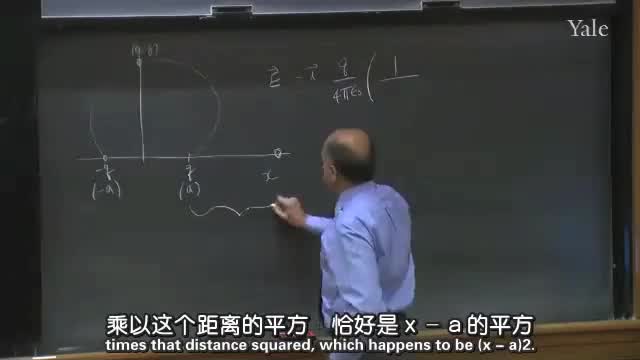 Yale
E = i q/4πε₀ ( 1
-q q x
(-a) (a)
乘以这个距离的平方 恰好是 x - a 的平方
times that distance squared, which happens to be (x – a)2.